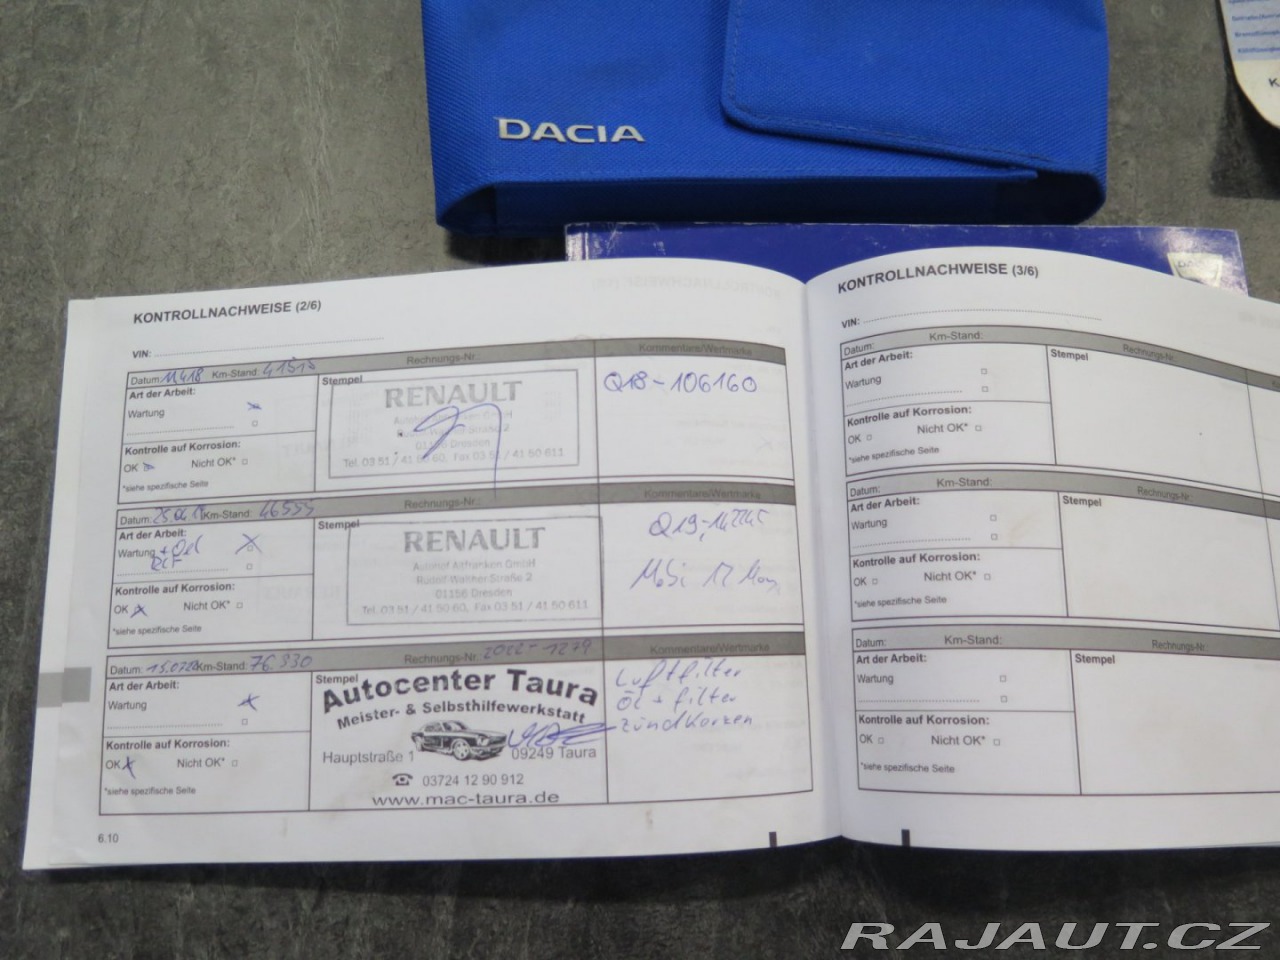 DACIA
KONTROLLNACHWEISE (2/6)
VIN:
Datum: 11.418 Km-Stand: 41515 Rechnungs-Nr.: Kommentare/Wertmarke
Art der Arbeit:
Wartung
Stempel
RENAULT
Autohof Altfranken GmbH
Rudolf Walther Straße 2
01156 Dresden
Tel. 03 51 / 41 50 60, Fax 03 51 / 41 50 611
Q18-106160
Kontrolle auf Korrosion:
OK Nicht OK*
*siehe spezifische Seite
Datum: 25.04.19 Km-Stand: 46555 Rechnungs-Nr.: Kommentare/Wertmarke
Art der Arbeit:
Wartung + Oel
Stempel
RENAULT
Autohof Altfranken GmbH
Rudolf Walther Straße 2
01156 Dresden
Tel. 03 51 / 41 50 60, Fax 03 51 / 41 50 611
MoSi 12 Mon
Kontrolle auf Korrosion:
OK Nicht OK*
*siehe spezifische Seite
Datum: 15.072 Km-Stand: 76.330 Rechnungs-Nr.: 2022-1279 Kommentare/Wertmarke
Art der Arbeit:
Wartung
Stempel
Autocenter Taura
Meister- & Selbsthilfewerkstatt
Hauptstraße 1 09249 Taura
☎ 03724 12 90 912
www.mac-taura.de
Luftfilter
Öl + filter
zündkerzen
Kontrolle auf Korrosion:
OK Nicht OK*
*siehe spezifische Seite
6.10
KONTROLLNACHWEISE (3/6)
VIN:
Datum: Km-Stand: Rechnungs-Nr.:
Art der Arbeit:
Wartung
Stempel
Kontrolle auf Korrosion:
OK Nicht OK*
*siehe spezifische Seite
Datum: Km-Stand: Rechnungs-Nr.:
Art der Arbeit:
Wartung
Stempel
Kontrolle auf Korrosion:
OK Nicht OK*
*siehe spezifische Seite
Datum: Km-Stand: Rechnungs-Nr.:
Art der Arbeit:
Wartung
Stempel
Kontrolle auf Korrosion:
OK Nicht OK*
*siehe spezifische Seite
RAJAUT.CZ